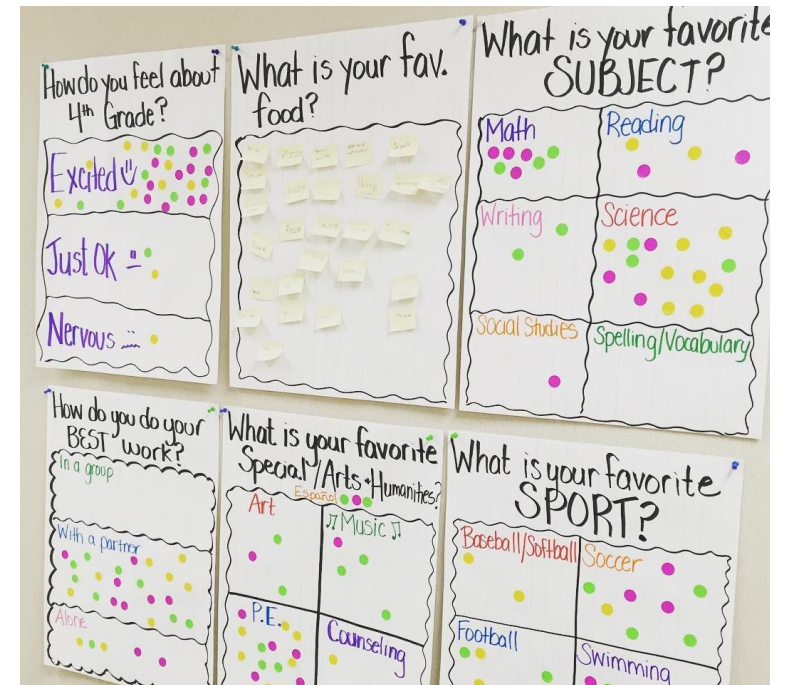 How do you feel about
4th Grade?
Excited
Just Ok
Nervous
What is your fav.
food?
What is your favorite
SUBJECT?
Math
Reading
Writing
Science
Social Studies
Spelling/Vocabulary
How do you do your
BEST work?
In a group
With a partner
Alone
What is your favorite
Special/Arts+Humanities?
Español
Art
Music
P.E.
Counseling
What is your favorite
SPORT?
Baseball/Softball
Soccer
Football
Swimming